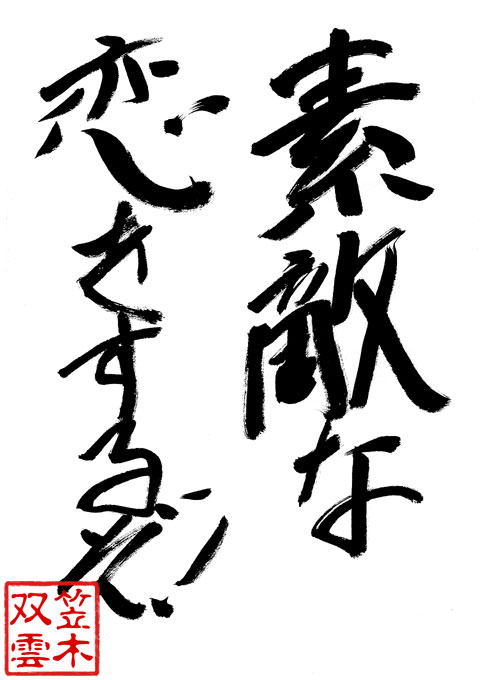 素敵な
恋をするぞ
笠木
双雲